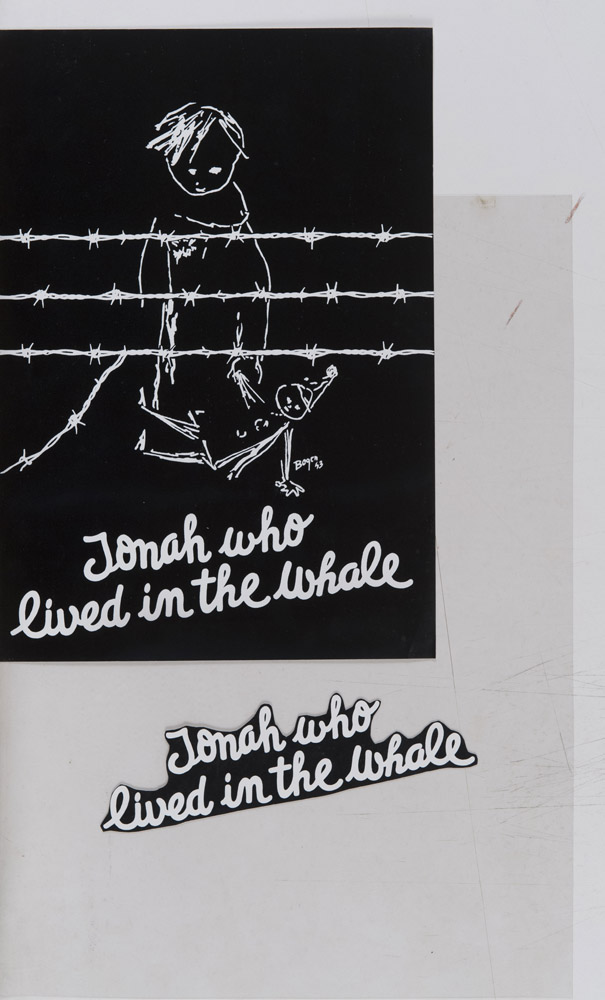 Jonah who
lived in the whale
Jonah who
lived in the whale